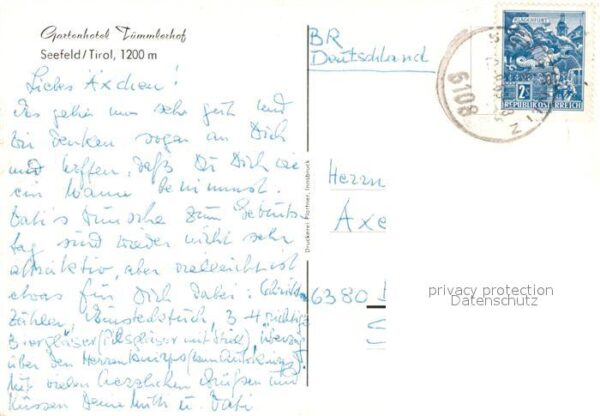 Gartenhotel Tümmlerhof
Seefeld/Tirol, 1200 m
Liebes Äxchen!
Es geht uns sehr gut und
wir denken sogar an Dich
und hoffen, daß Du Dich wie
ein Mann benimmst.
Vati's Wünsche zum Geburts-
tag sind wieder nicht sehr
attraktiv, aber vielleicht ist
etwas für Dich dabei:
Zähler, 3-4 richtige
Biergläser (Pilsgläser mit Stiel),
über den Herrenknirps
Mit vielen herzlichen Grüßen und
Küssen Deine Mutti u. Vati
BR
Deutschland
Druckerei Partner, Innsbruck
Herrn
Axe
6380
KLAGENFURT
2S
REPUBLIK ÖSTERREICH
6108
privacy protection
Datenschutz